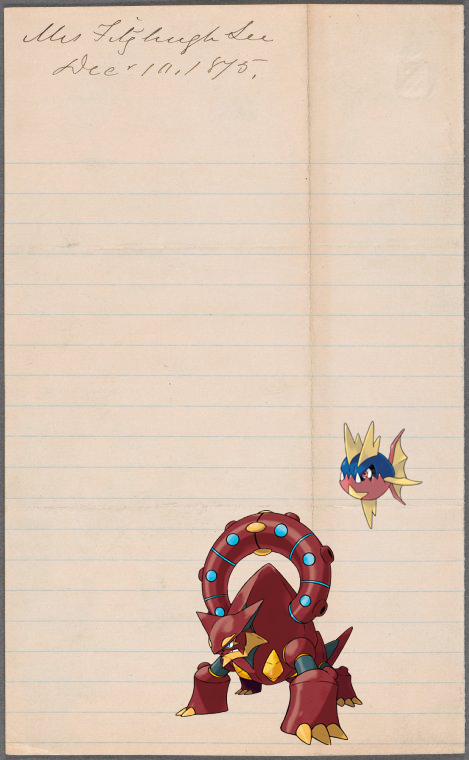 Mrs Fitzhugh Lee
Decr 10, 1875.